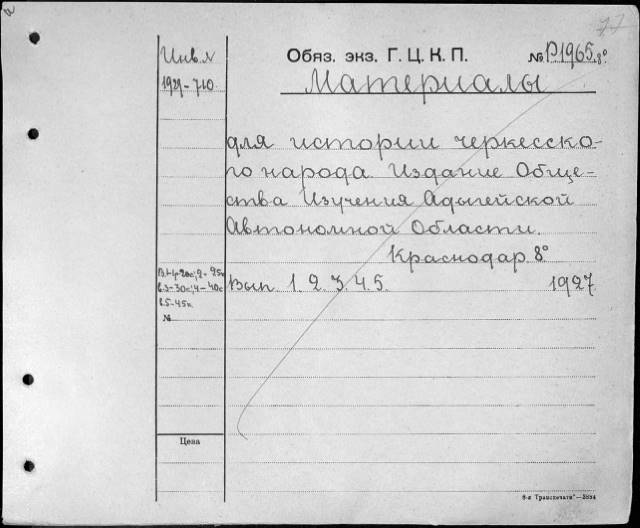 Инв. N
1929-710
Обяз. экз. Г. Ц. К. П. № Р1965 8°
Материалы
для истории черкесско-
го народа. Издание Обще-
ства Изучения Адыгейской
Автономной Области.
Краснодар 8°
Вып. 1. 2. 3. 4. 5. 1927
в.3-30с; 4-40с
в.5-45к.
№
Цена
8-я Транспечати"—3894